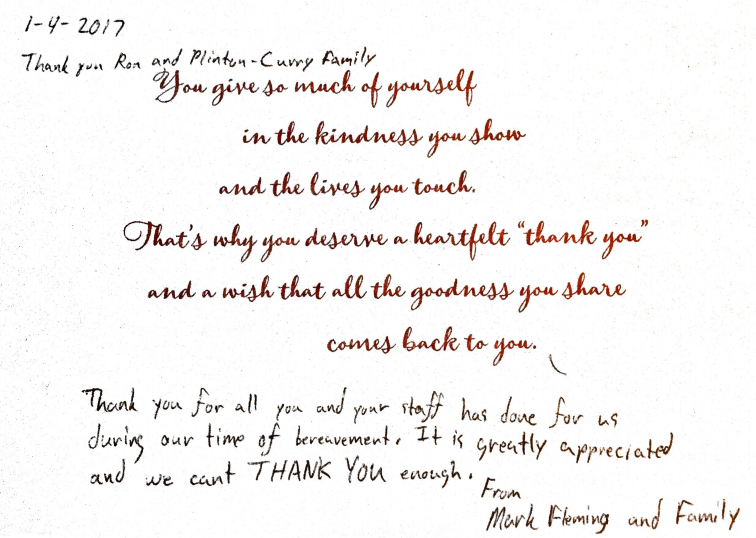 1-4-2017
Thank you Ron and Plinton-Curry Family
You give so much of yourself
in the kindness you show
and the lives you touch.
That's why you deserve a heartfelt “thank you”
and a wish that all the goodness you share
comes back to you.
Thank you for all you and your staff has done for us
during our time of bereavement. It is greatly appreciated
and we cant THANK YOU enough.
From
Mark Fleming and Family